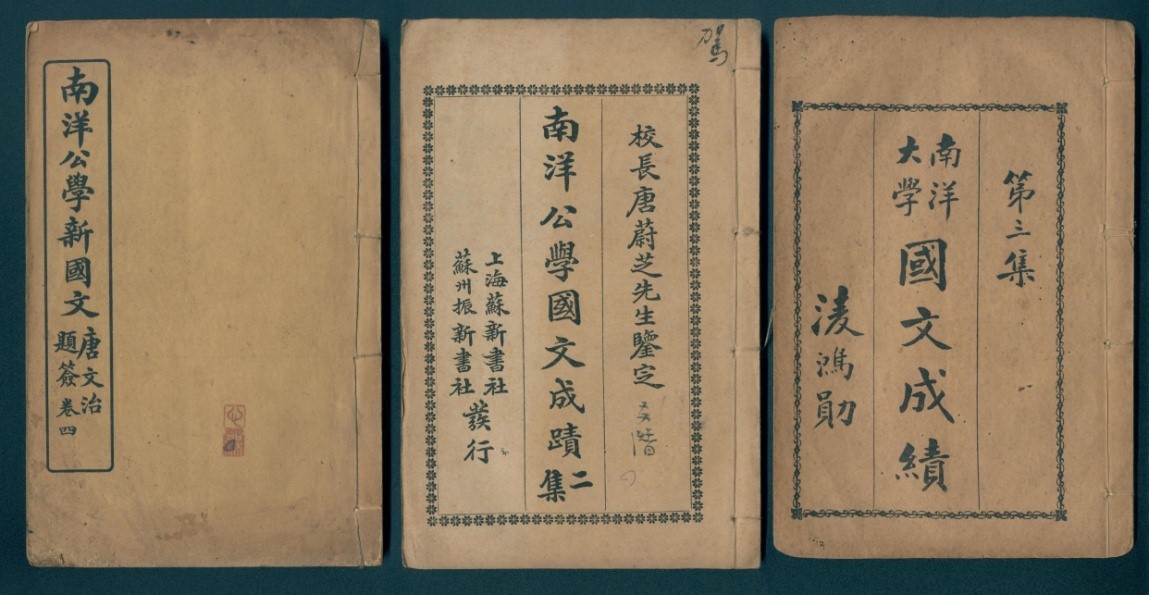 南洋公學新國文
唐文治
題簽
卷四
校長唐蔚芝先生鑒定
南洋公學國文成蹟
二集
上海蘇新書社
蘇州振新書社
發行
第三集
南洋
大學
國文成績
凌鴻勛